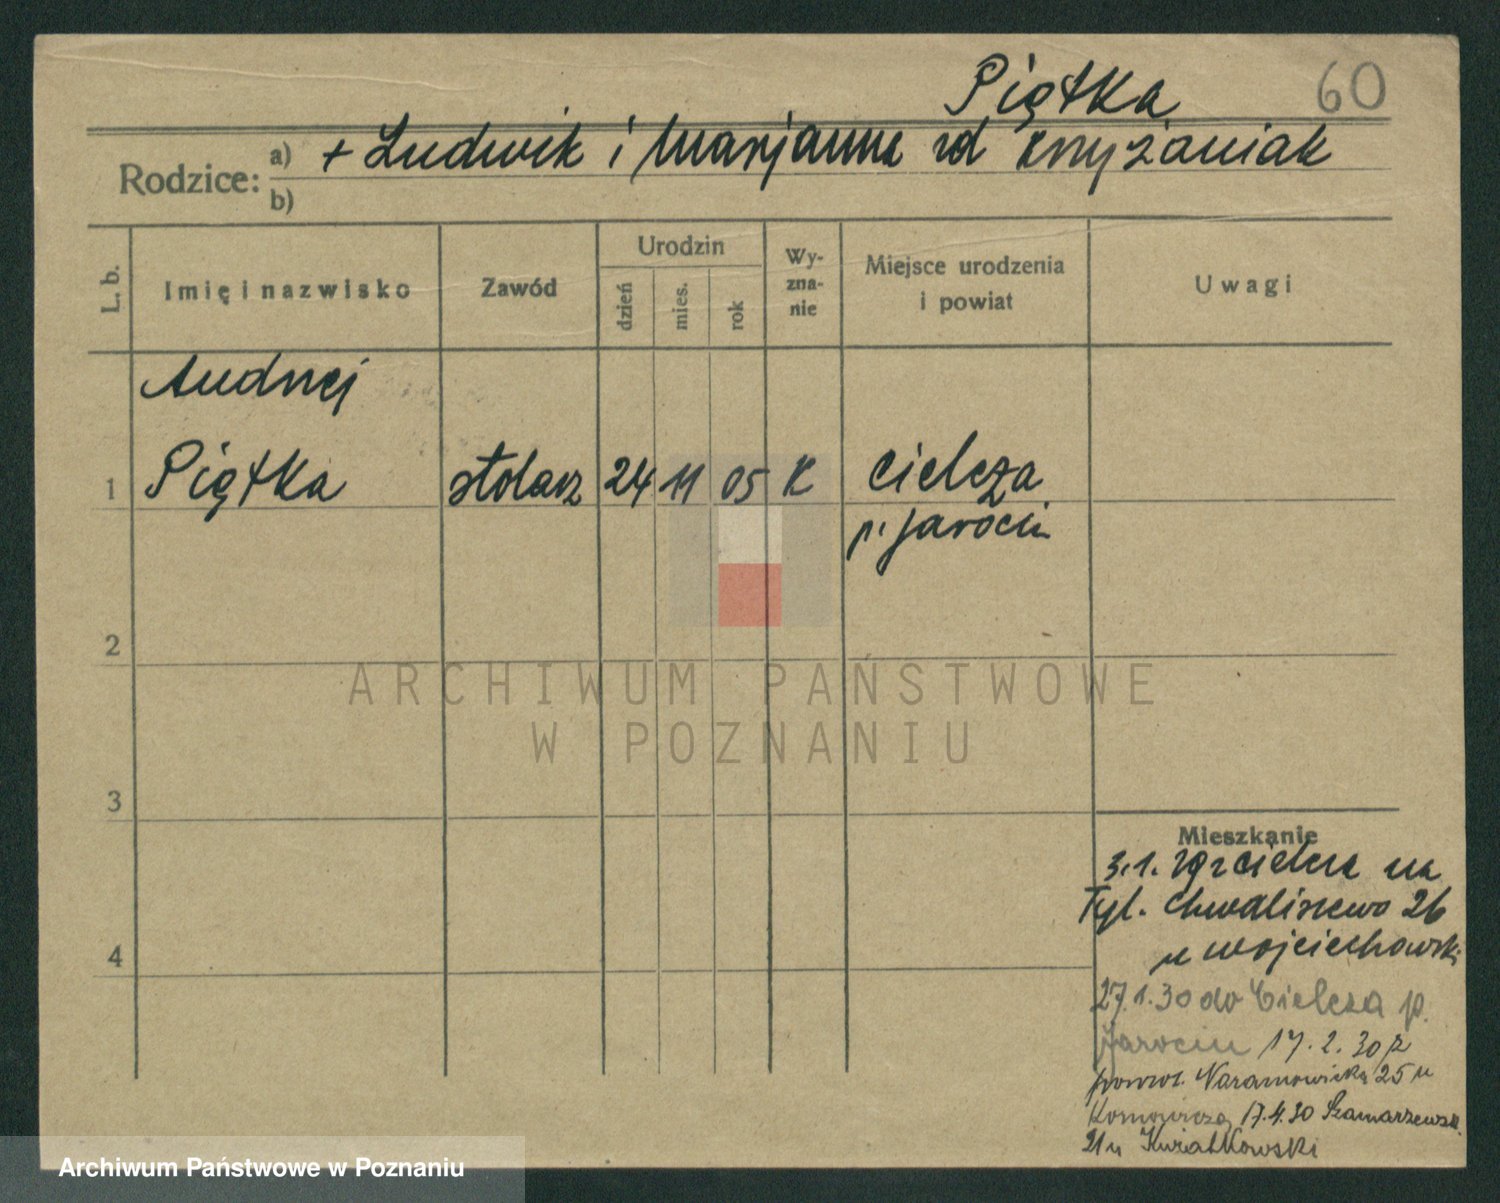 Piątka
60
Rodzice:
a) + Ludwik i Marjanna zd Krzyżaniak
b)
L. b.
Imię i nazwisko
Zawód
Urodzin
dzień
mies.
rok
Wy-
zna-
nie
Miejsce urodzenia
i powiat
Uwagi
Andrzej
1 Piątka stolarz 24 11 05 K Cielcza
p. Jarocin
2
3
4
ARCHIWUM PAŃSTWOWE
W POZNANIU
Mieszkanie
3.1. na
Chwaliszewo 26
u Wojciechowski
27.1.30 do Cielcza p.
Jarocin 17.2.30 z
powrot. Naramowicka 25 u
17.4.30 Szamarzewsk.
21 u
Archiwum Państwowe w Poznaniu